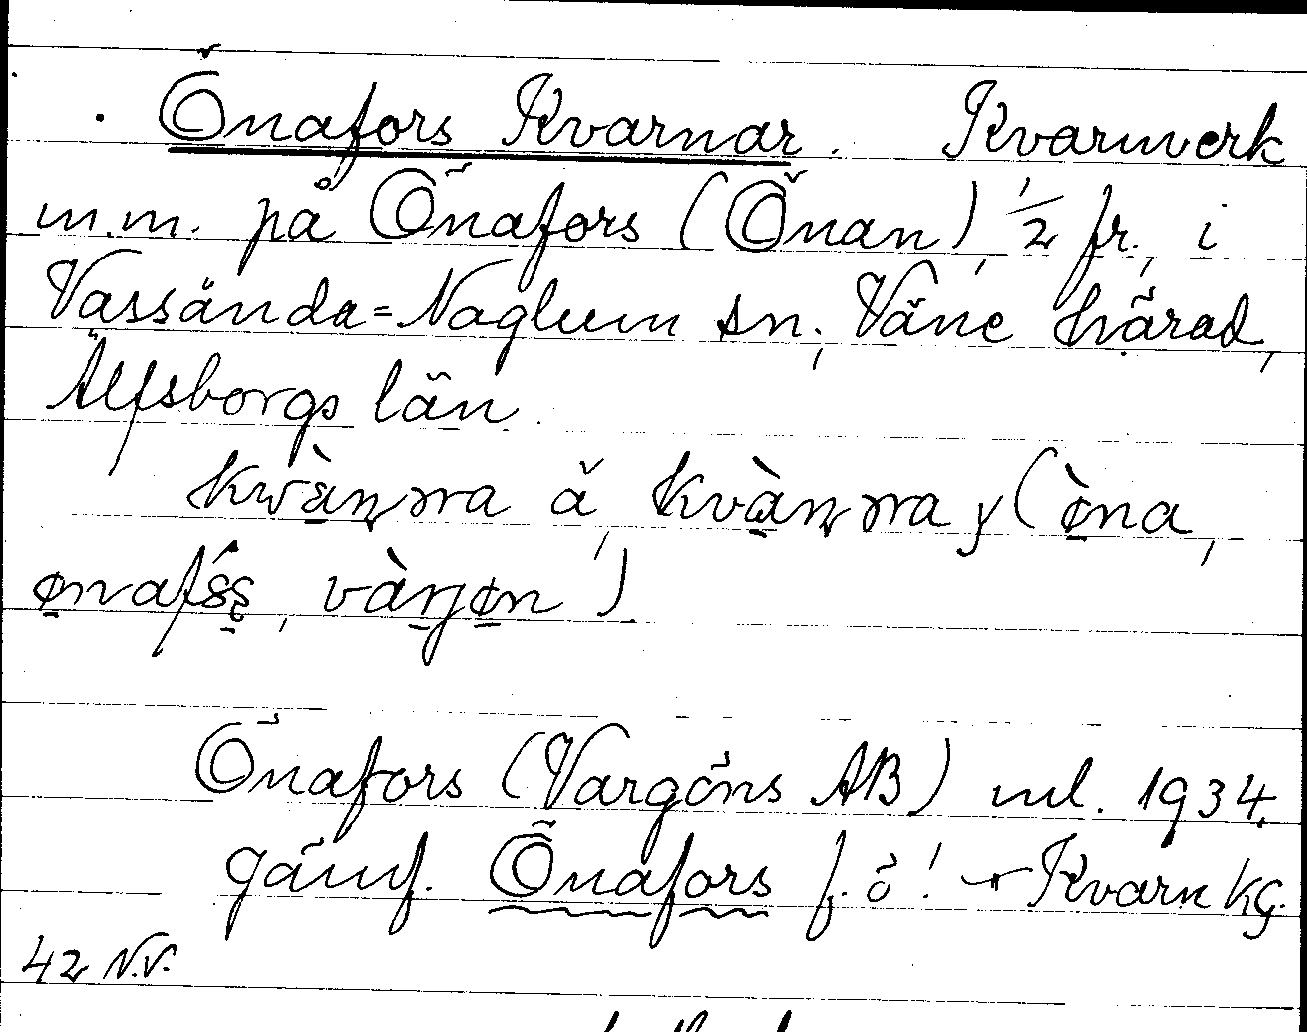 Önafors Kvarnar. Kvarnverk
m.m. på Önafors (Önan), 1/2 fr., i
Vassända=Naglum sn; Väne härad,
Älfsborgs län.
kwàṇṇa å, kvàṇṇa y (ø̀na,
vàŋøn)
Önafors (Vargöns AB) ml. 1934.
jämf. Önafors f. ö! Kvarn kg.
42 N.V.